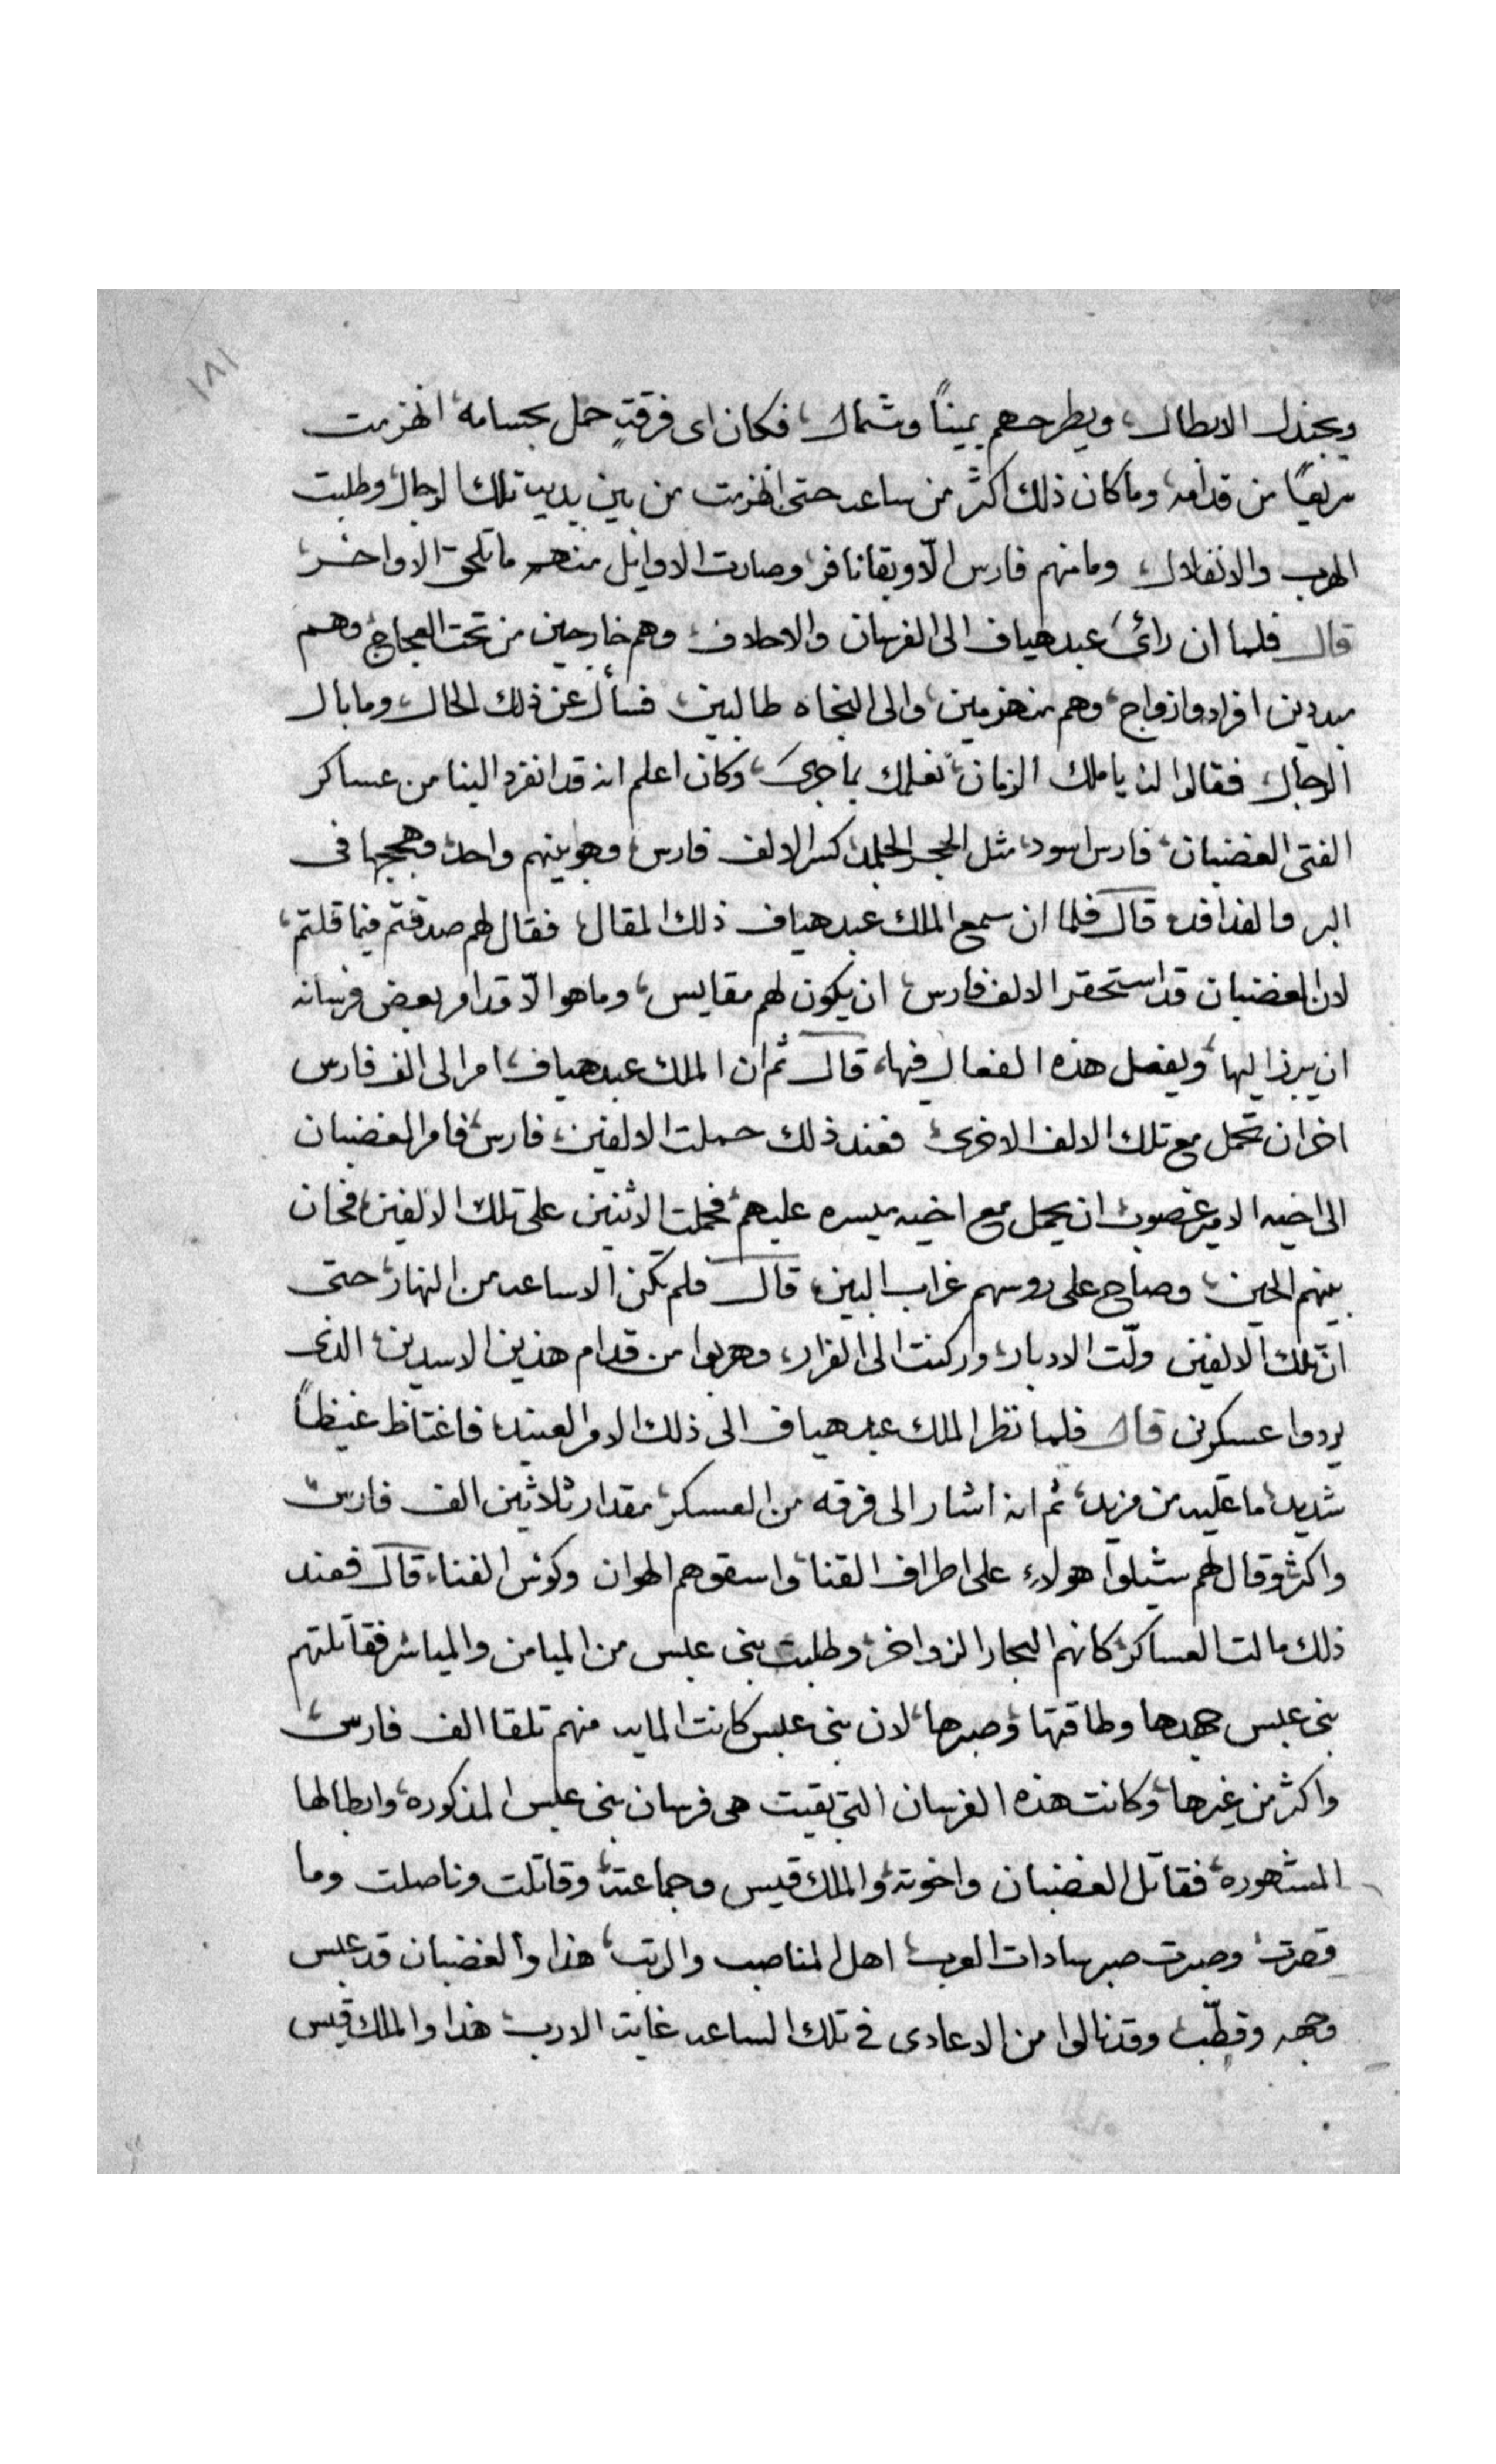 ١٨١
ويجندل الابطال، ويطرحهم يميناً وشمال، فكان اى فرقةٍ حمل بحسامه انهزمت
سريعًا من قدامه، وما كان ذلك اكثر من ساعه حتى انهزمت من بين يديه تلك الرجال وطلبت
الهرب والانفلال، وما منهم فارس الّا وبقا نافر، وصارت الاوايل منهم ما تلحق الاواخر،
قال فلما ان رائ عبد هياف الى الفرسان والاحلاف، وهم خارجين من تحت العجاج، وهم
مبددين افراد وازواج، وهم منهزمين، والى النجاه طالبين، فسأل عن ذلك الحال، وما بال
الرجال، فقالوا له يا ملك الزمان، نعلمك بما جرى، وكان اعلم انه قد انفرد الينا من عساكر
الفتى الغضبان، فارس اسود، مثل الحجر الجلمد، كسر الالف فارس، وهو بينهم واحد، وهججها فى
البر والفدافد، قال فلما ان سمع الملك عبد هياف ذلك المقال، فقال لهم صدقتم فيما قلتم،
لان الغضبان قد استحقر الالف فارس، ان يكون لهم مقايس، وما هو الّا قد امر بعض فرسانه
ان يبرز اليها، ويفصل هذه الفعال فيها، قال ثم ان الملك عبد هياف، امر الى الف فارس
اخر ان تحمل مع تلك الالف الاخرى، فعند ذلك حملت الالفين، فارس، فامر الغضبان
الى اخيه الامير غصوب ان يحمل مع اخيه ميسره عليهم، فحملت الاثنين على تلك الالفين، فحان
بينهم الحين، وصاح على روسهم غراب البين، قال فلم تكن الا ساعه من النهار، حتى
انّ تلك الالفين ولّت الادبار، واركنت الى الفرار، وهربوا من قدام هذين الاسدين، الذى
يردوا عسكرين قال فلما نظر الملك عبد هياف الى ذلك الامر العنيد، فاغتاظ غيظاً
شديد، ما عليه من مزيد، ثم انه اشار الى فرقه من العسكر، مقدار ثلاثين الف فارس
واكثر وقال لهم شيلوا هولاءِ على اطراف القنا، واسقوهم الهوان وكوس الفناء، قال فعند
ذلك مالت العساكر، كانهم البحار الزواخر، وطلبت بنى عبس من الميامن والمياسر فقاتلتهم
بنى عبس جهدها وطاقتها، وصبرها، لان بنى عبس كانت المايه منهم تلقا الف فارس،
واكثر من غيرها، وكانت هذه الفرسان التى بقيت هى فرسان بنى عبس المذكوره، وابطالها
المشهوره، فقاتل الغضبان واخوته، والملك قيس وجماعته، وقاتلت وناصلت وما
قصرت، وصبرت صبر سادات العرب، اهل المناصب والرتب، هذا والغضبان قد عبس
وجهه وقطّب، وقد نالوا من الاعادى فى تلك الساعه غاية الارب، هذا والملك قيس